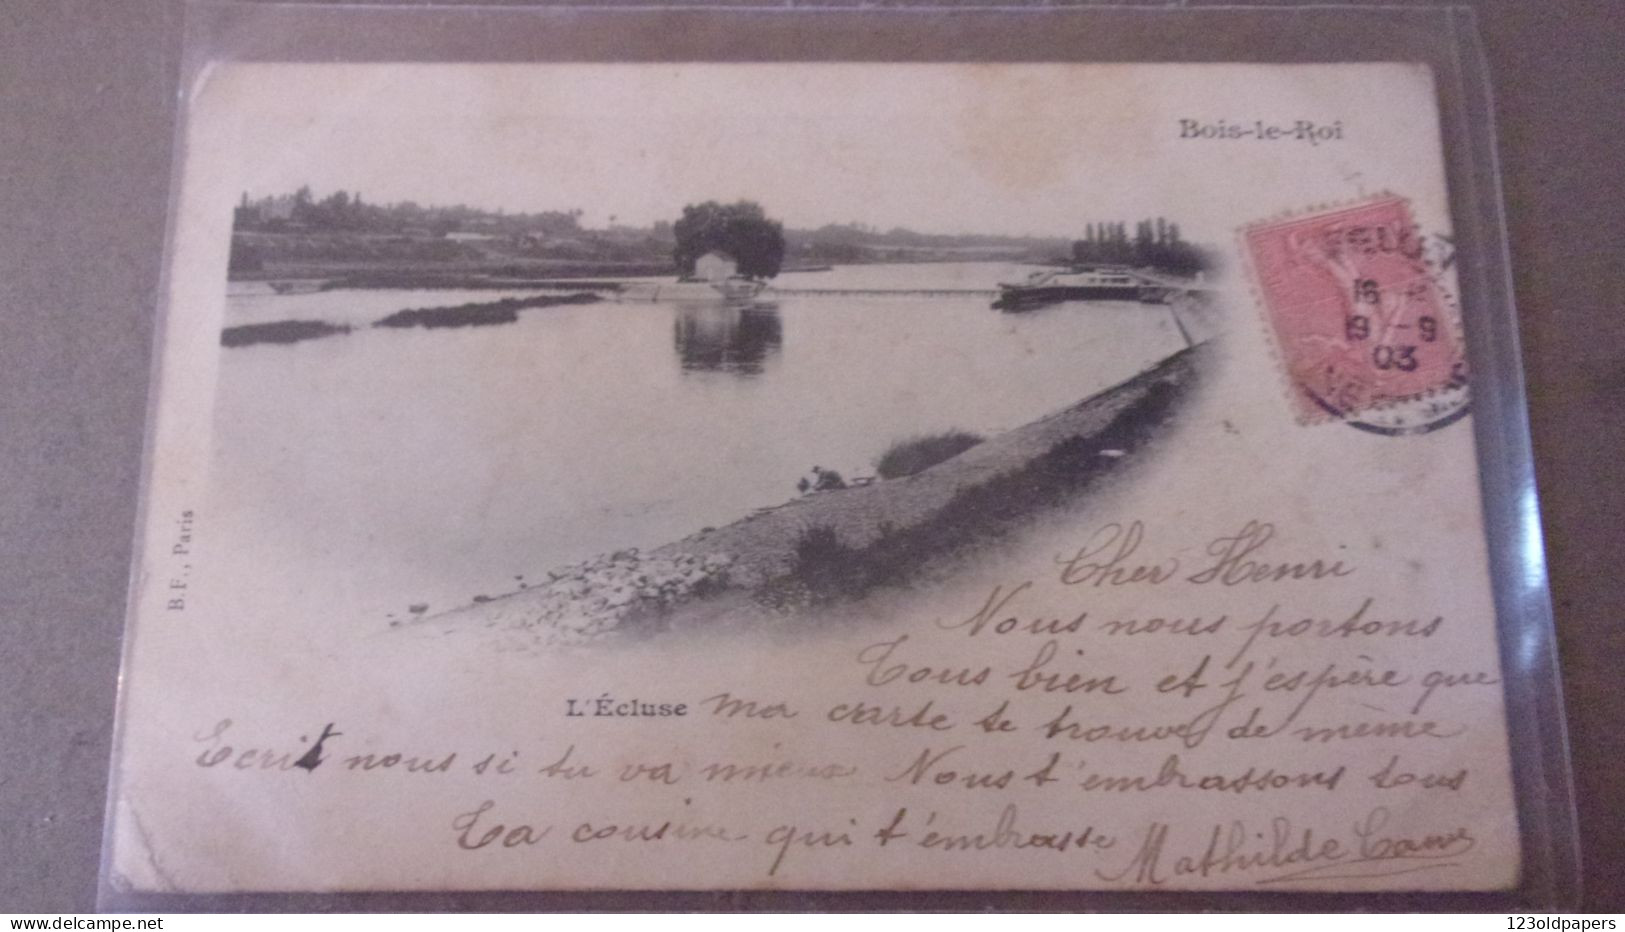 Bois-le-Roi
16
19 - 9
03
B.F., Paris
Cher Henri
Nous nous portons
Tous bien et j'espère que
L'Écluse
ma carte te trouve de même
Ecrit nous si tu va mieux Nous t'embrassons tous
Ta cousine qui t'embrasse
Mathilde
123oldpapers